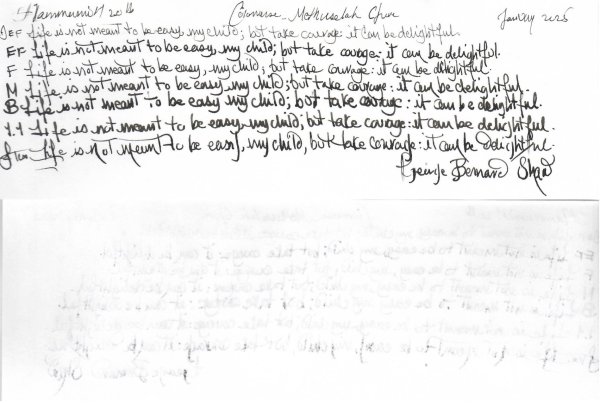 Hammermill 20 lb Converse. Methuselah Gern January 2025
EF Life is not meant to be easy, my child; but take courage: it can be delightful.
EF Life is not meant to be easy, my child; but take courage: it can be delightful.
F Life is not meant to be easy, my child; but take courage: it can be delightful.
M Life is not meant to be easy, my child; but take courage: it can be delightful.
B Life is not meant to be easy my child; but take courage: it can be delightful.
1.1 Life is not meant to be easy, my child; but take courage: it can be delightful.
Life is not meant to be easy, my child, but take courage: it can be delightful.
George Bernard Shaw